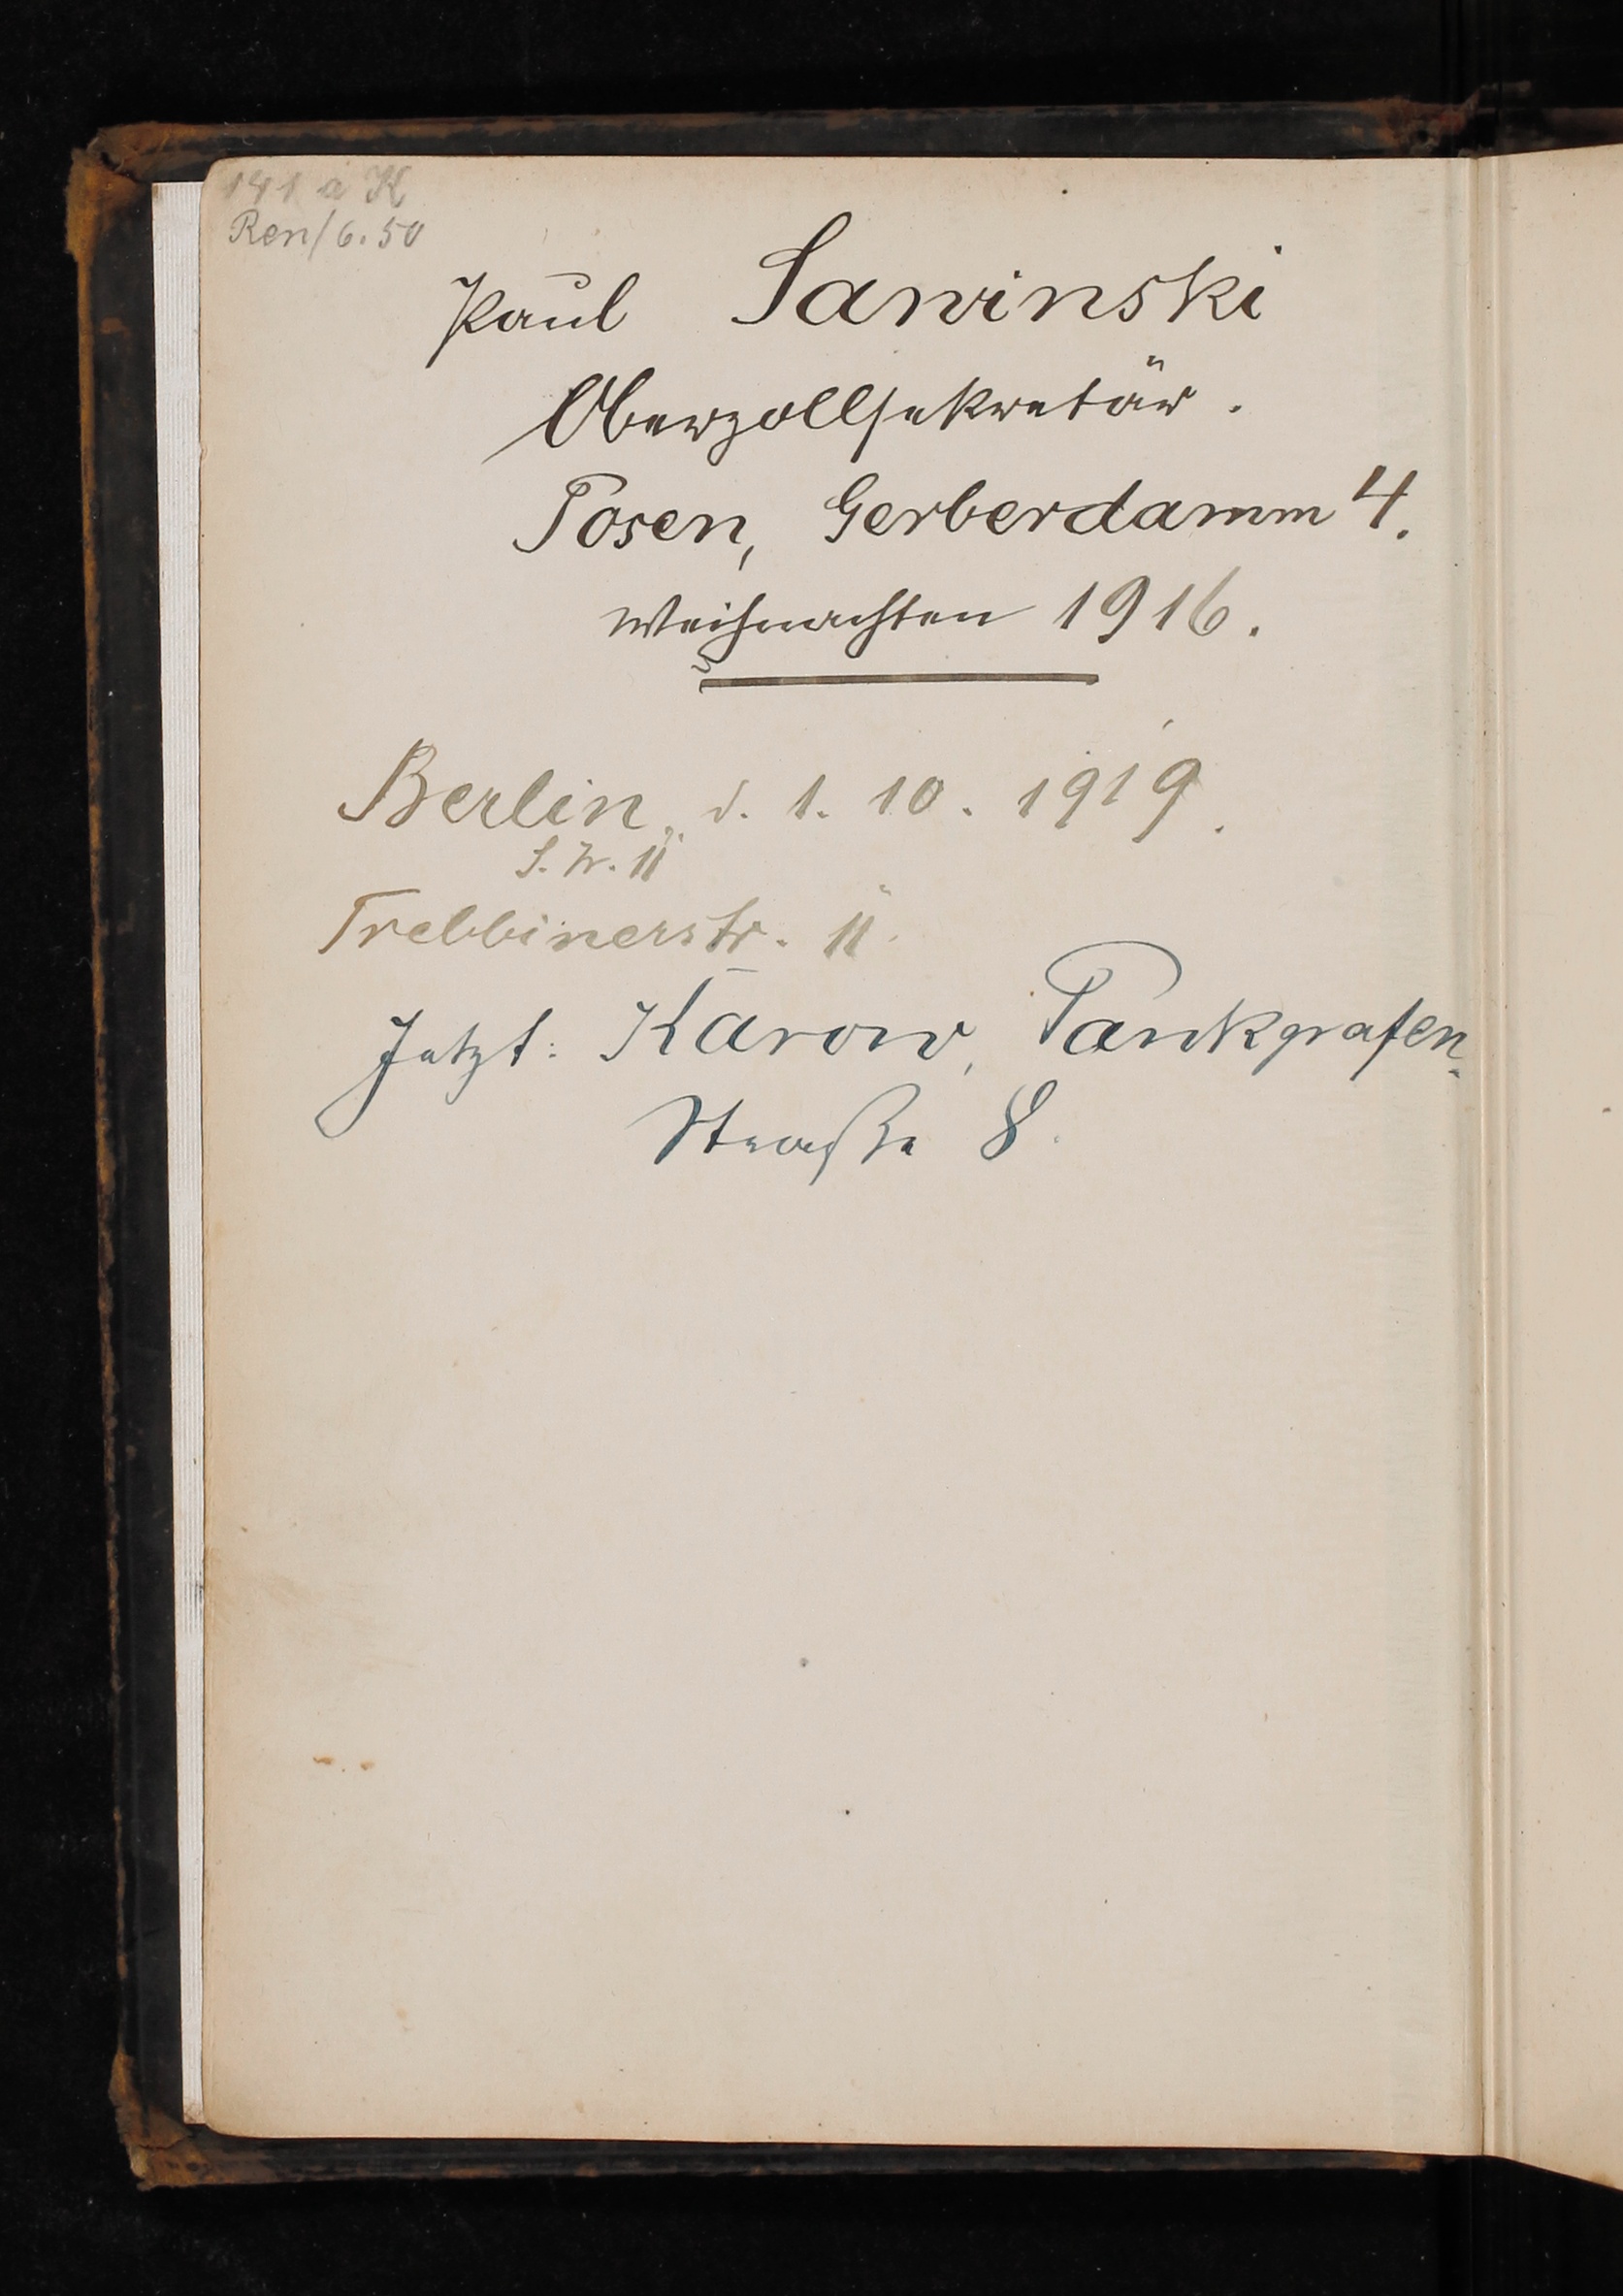 141 a K
Ren/6.50
Paul Sawinski
Oberzollsekretär.
Posen, Gerberdamm 4.
Weihnachten 1916.
Berlin, d. 1. 10. 1919.
S.W. 11
Trebbinerstr. 11.
Jetzt: Karow, Pankgrafen-
Straße 8.